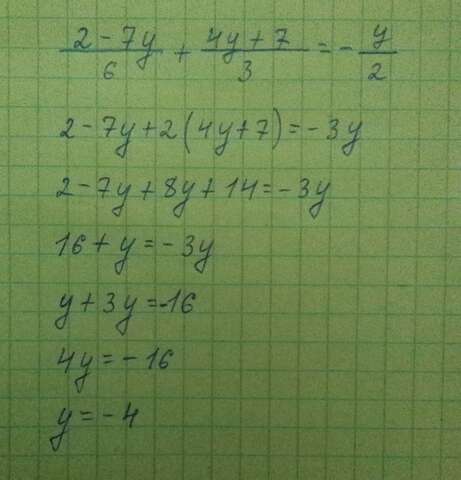 (2 - 7y)/6 + (4y + 7)/3 = - y/2
2 - 7y + 2(4y + 7) = - 3y
2 - 7y + 8y + 14 = - 3y
16 + y = - 3y
y + 3y = -16
4y = - 16
y = - 4